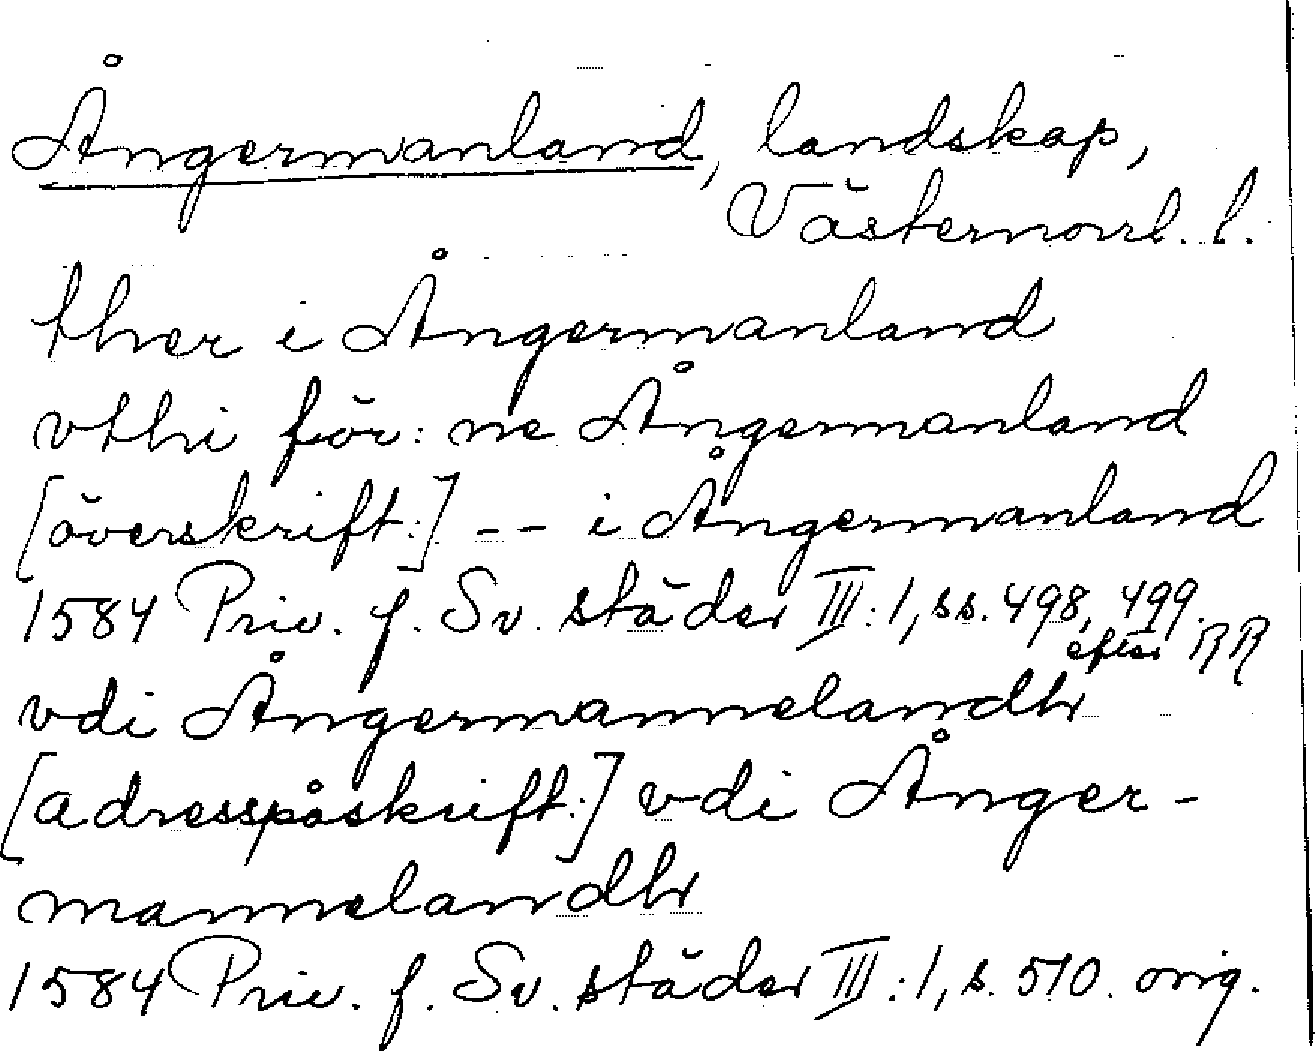 Ångermanland, landskap,
Västernorrl. l.
ther i Ångermanland
vthi för: ne Ångermanland
[överskrift:] -- i Ångermanland
1584 Priv. f. Sv. städer III:1, ss. 498, 499.
efter RR
vdi Ångermannelandh
[adresspåskrift:] vdi Ånger-
mannelandh
1584 Priv. f. Sv. städer III:1, s. 510. orig.